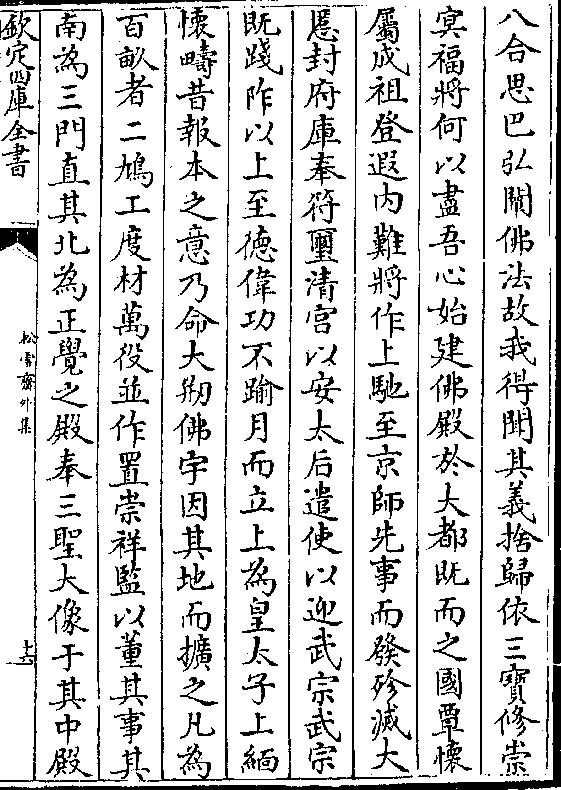 八合思巴弘闡佛法故我得聞其義捨歸依三寶修崇
冥福將何以盡吾心始建佛殿於大都既而之國覃懷
屬成祖登遐内難將作上馳至京師先事而發殄滅大
慝封府庫奉符璽清宫以安太后遣使以迎武宗武宗
既踐阼以上至德偉功不踰月而立上為皇太子上緬
懷疇昔報本之意乃命大剏佛宇因其地而擴之凡為
百畝者二鳩工度材萬役並作置崇祥監以董其事其
南為三門直其北為正覺之殿奉三聖大像于其中殿
欽定四庫全書
松雪齋外集
十六